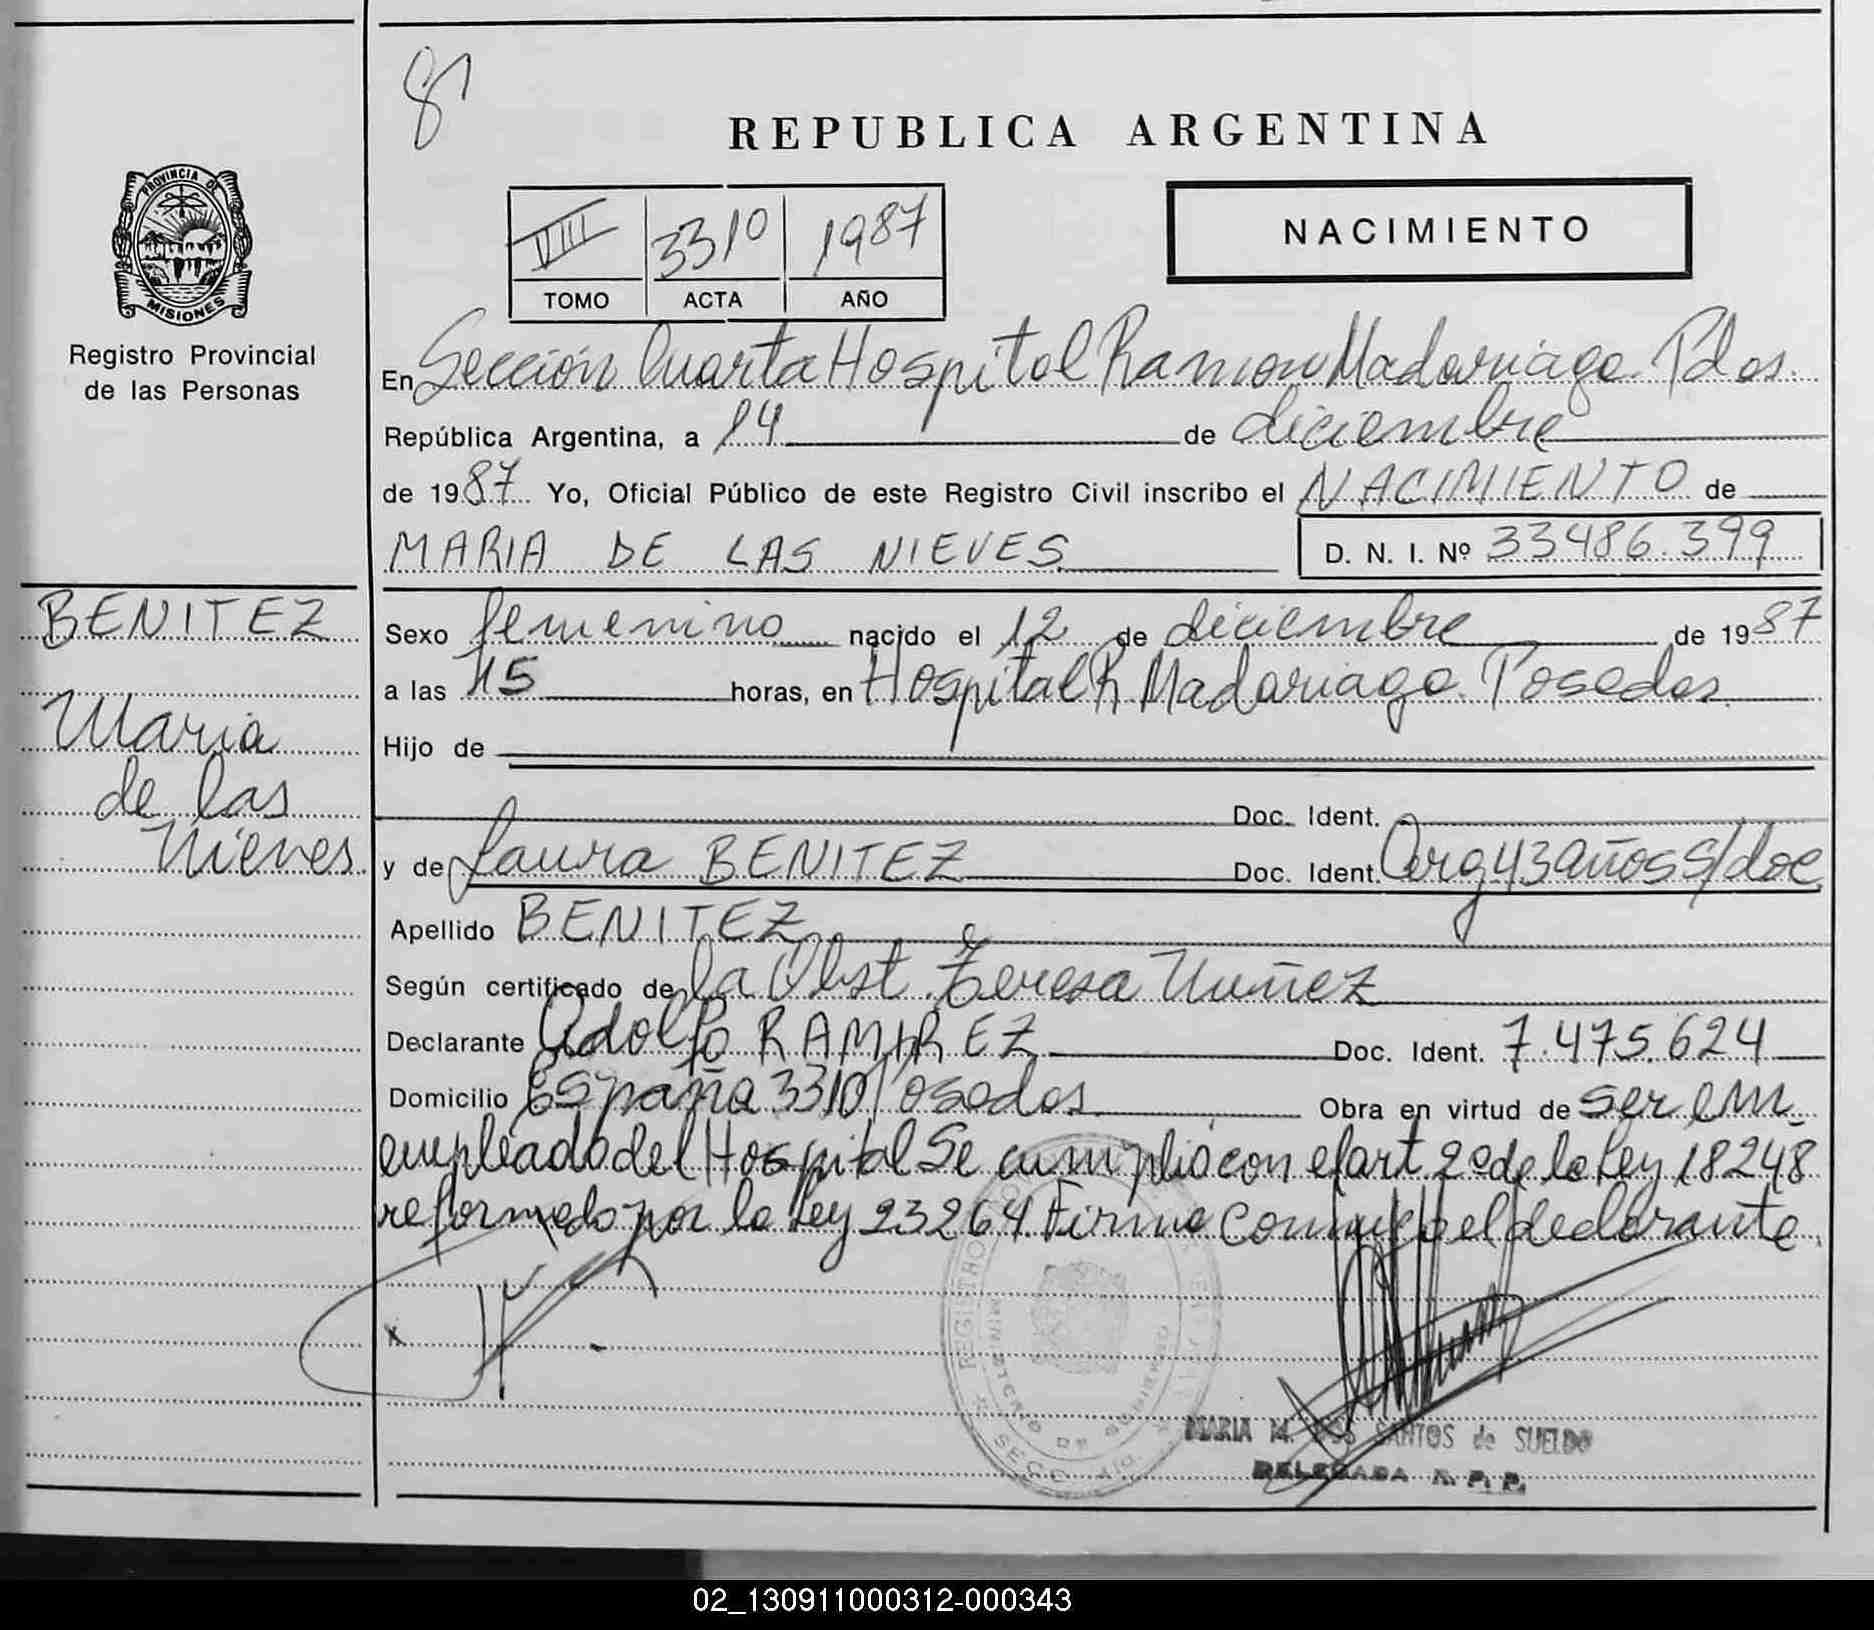 81
REPUBLICA ARGENTINA
PROVINCIA DE
MISIONES
Registro Provincial
de las Personas
VIII 3310 1987
TOMO ACTA AÑO
NACIMIENTO
En Sección Cuarta Hospital Ramon Madariaga. Pdas.
República Argentina, a 14 de diciembre
de 1987 Yo, Oficial Público de este Registro Civil inscribo el NACIMIENTO de
MARIA DE LAS NIEVES D. N. I. Nº 33486.399
BENITEZ
Maria
de las
Nieves
Sexo femenino nacido el 12 de diciembre de 1987
a las horas, en Hospital R Madariaga. Posadas
Hijo de
Doc. Ident.
y de Laura BENITEZ Doc. Ident. Arg 43 años S/doc
Apellido BENITEZ
Según certificado de la Obst. Teresa Nuñez
Declarante Adolfo RAMIREZ Doc. Ident. 7.475.624
Domicilio España 3310 Posadas Obra en virtud de ser em
empleado del Hospital Se cumplió con el art. 2º de la Ley 18248
reformado por la Ley 23264 Firma conmigo el declarante.
x
REGISTRO
MINISTERIO DE GOBIERNO
SECC
MARIA M. DOS SANTOS de SUELDO
DELEGADA R. P. P.
02_130911000312-000343